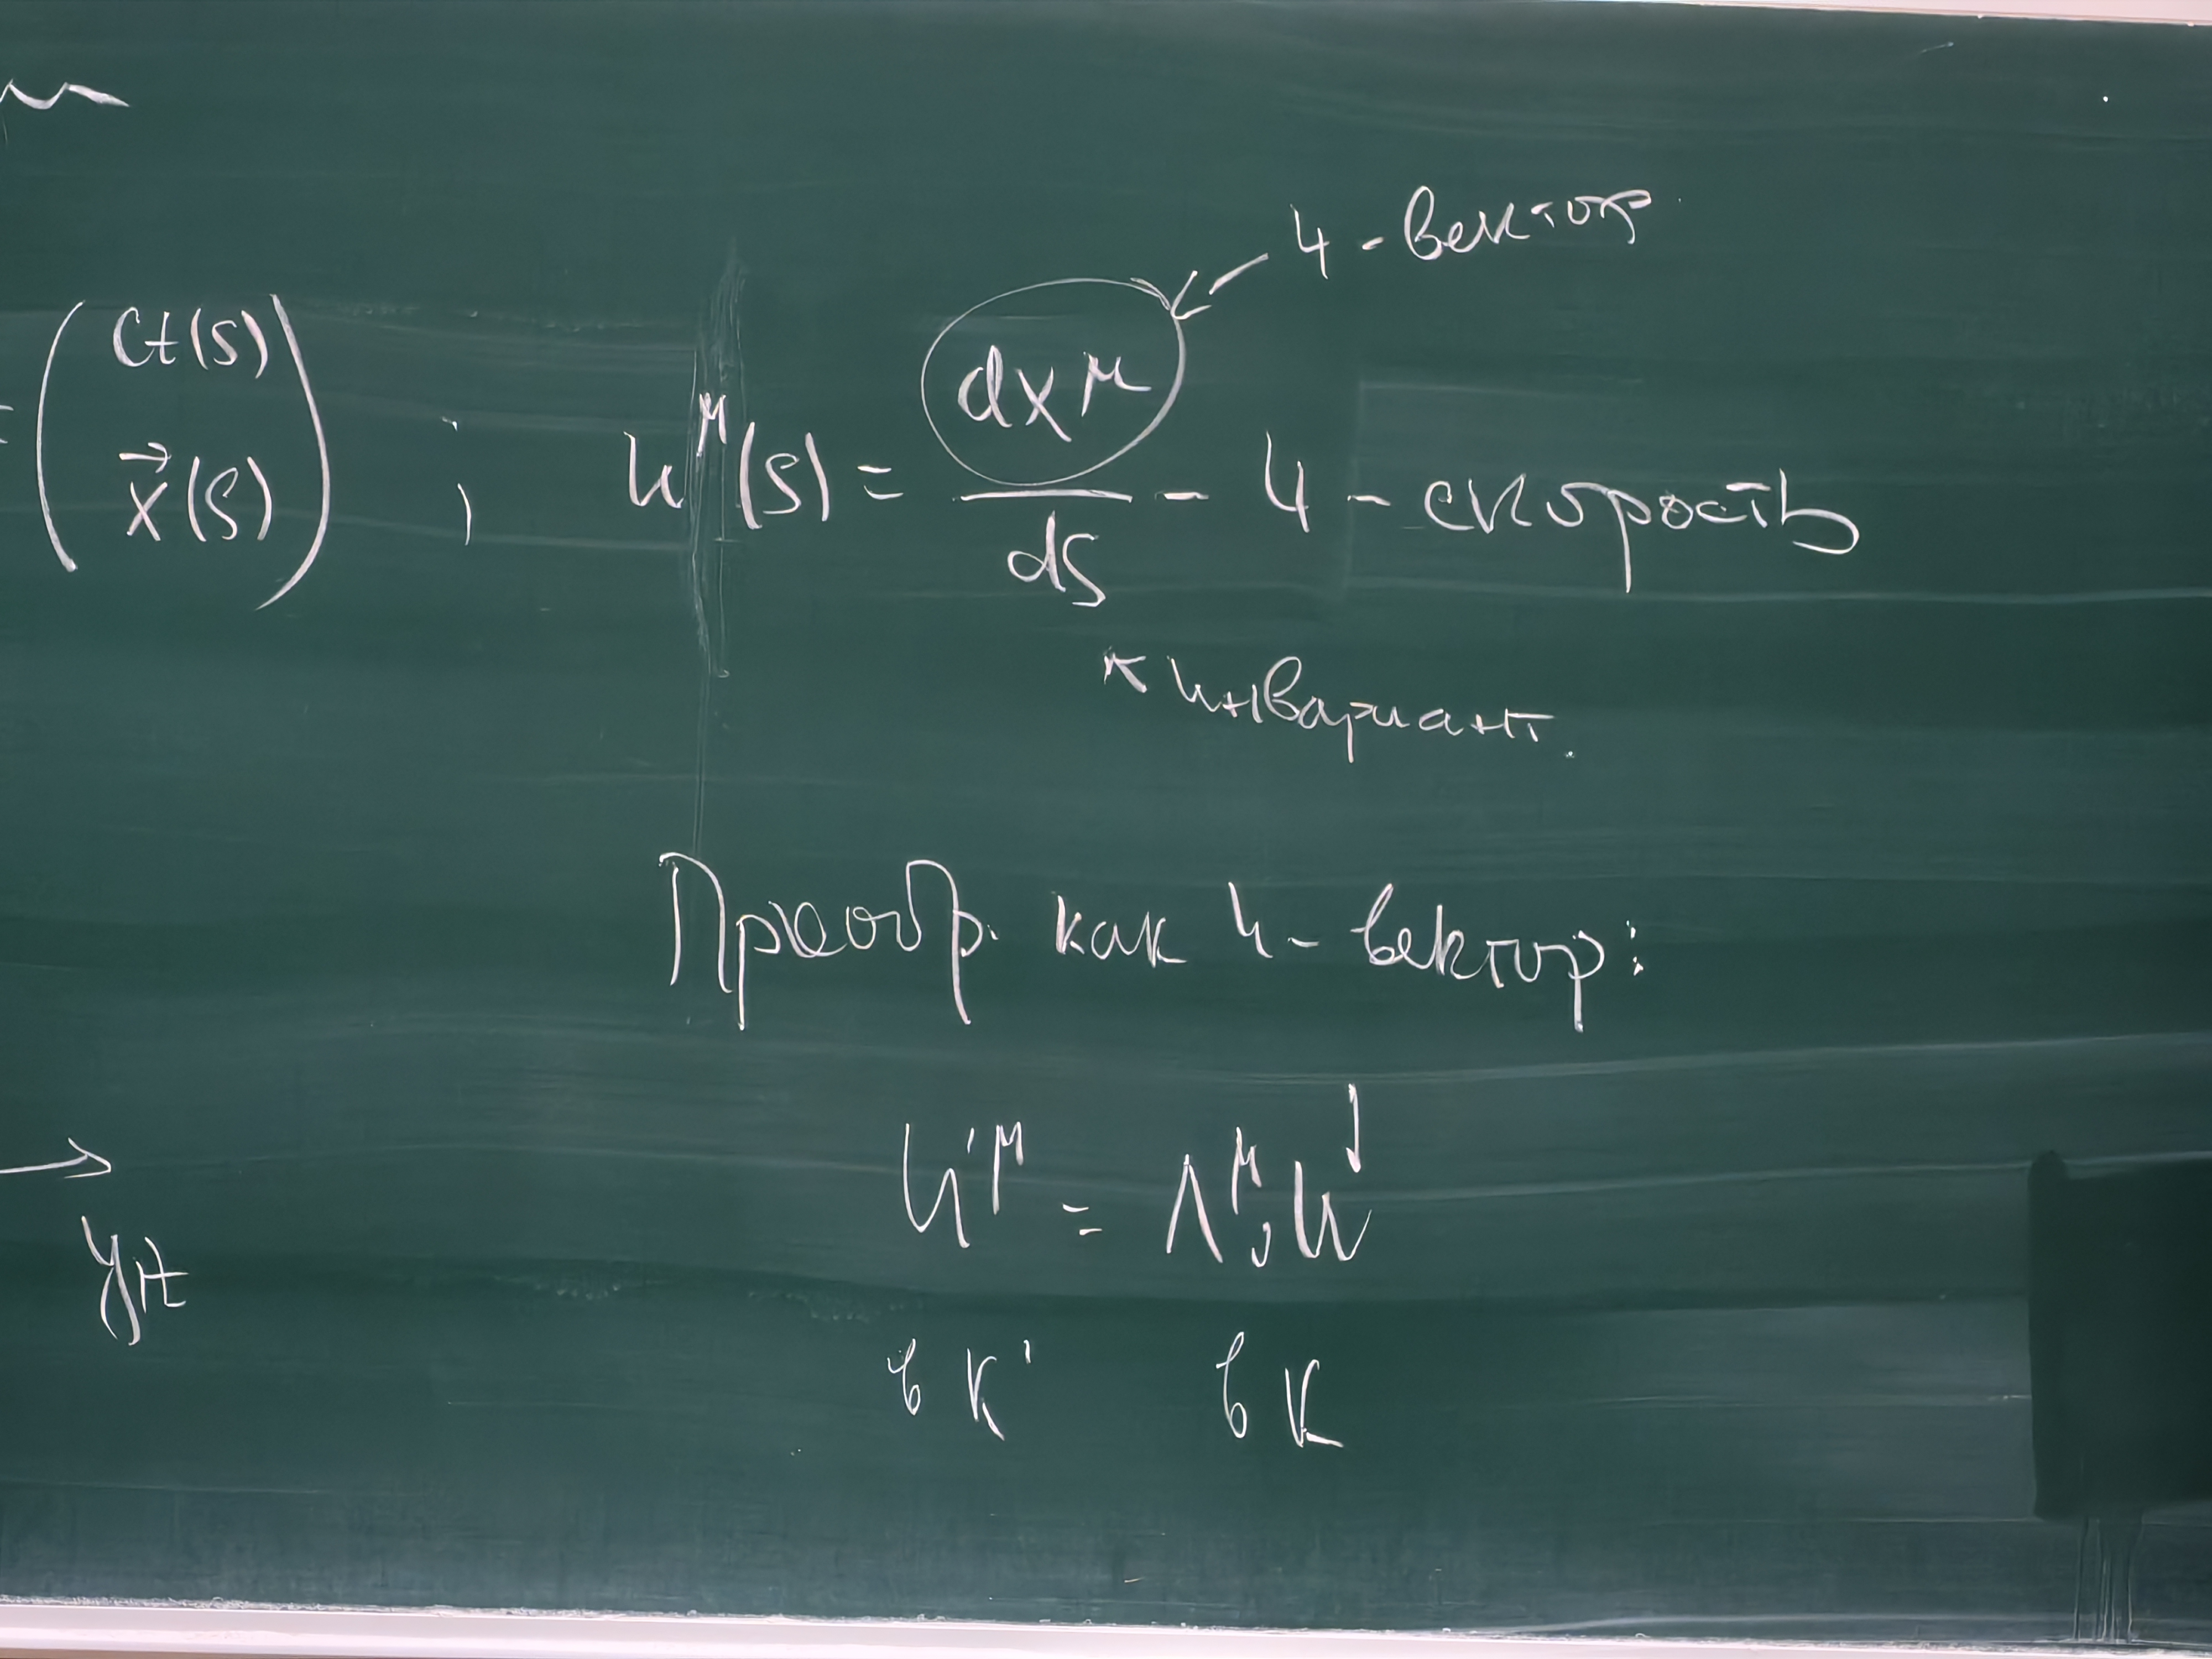 4 - вектор
= ( ct(s) x⃗(s) ) ; u^μ(s) = dx^μ / ds - 4 - скорость
↖ инвариант.
Преобр. как 4 - вектор:
u'^μ = Λ^μ_ν u^ν
в K' в K